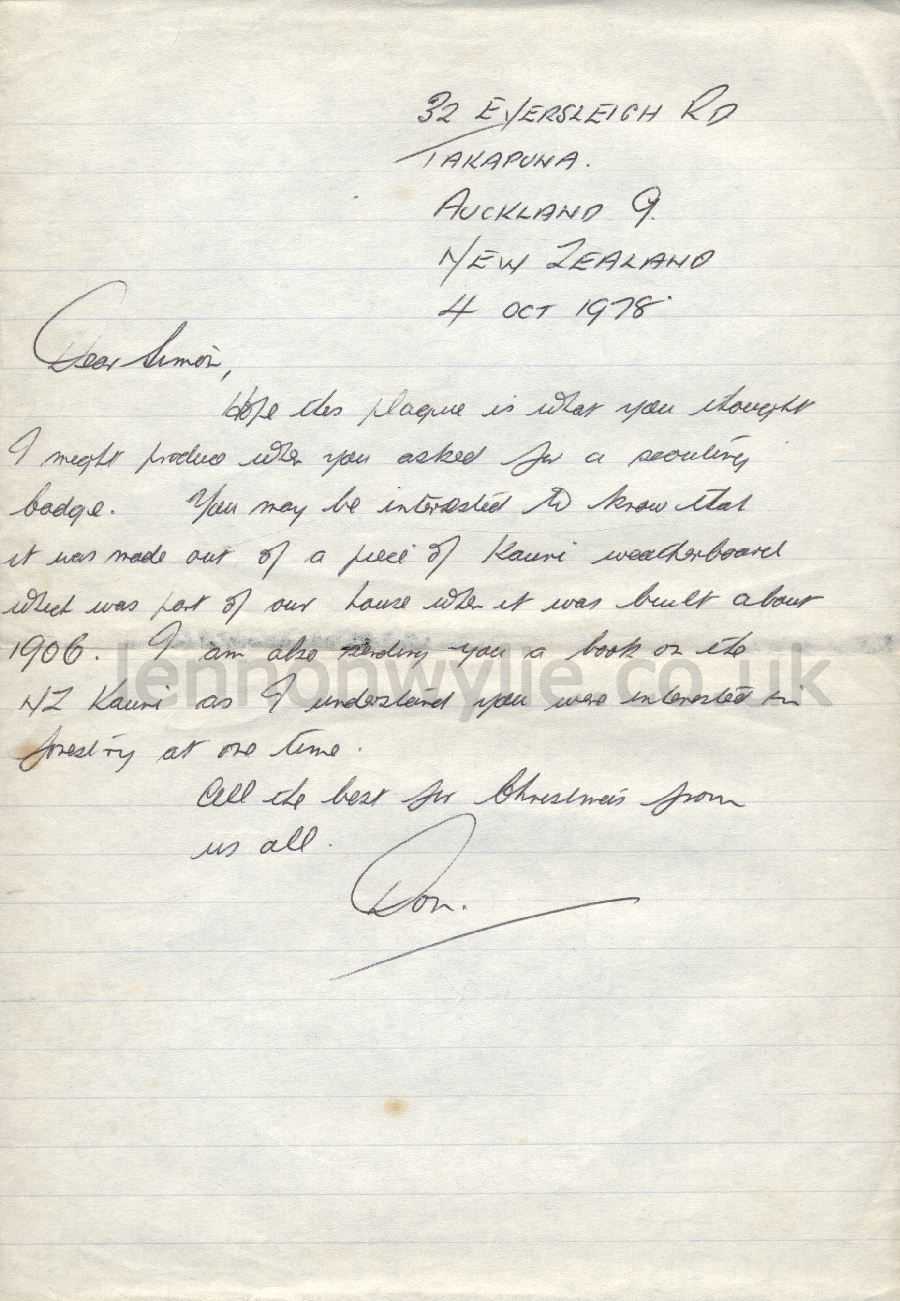 32 EVERSLEIGH RD
TAKAPUNA.
AUCKLAND 9.
NEW ZEALAND
4 OCT 1978
Dear Simon,
Hope this plaque is what you thought
I might produce when you asked for a scouting
badge. You may be interested to know that
it was made out of a piece of Kauri weatherboard
which was part of our house when it was built about
1906. I am also sending you a book on the
NZ Kauri as I understand you were interested in
forestry at one time.
All the best for Christmas from
us all.
Don.
lennonwylie.co.uk